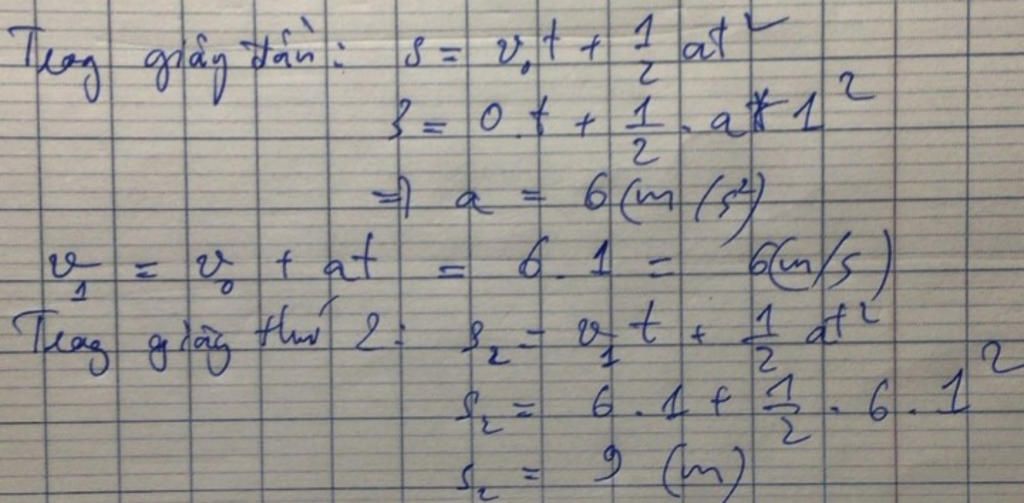 Trong giây đầu: s = v₀t + 1/2 at²
3 = 0.t + 1/2 . a * 1²
=> a = 6 (m/s²)
v₁ = v₀ + at = 6 . 1 = 6(m/s)
Trong giây thứ 2: s₂ = v₁t + 1/2 at²
s₂ = 6 . 1 + 1/2 . 6 . 1²
s₂ = 9 (m)